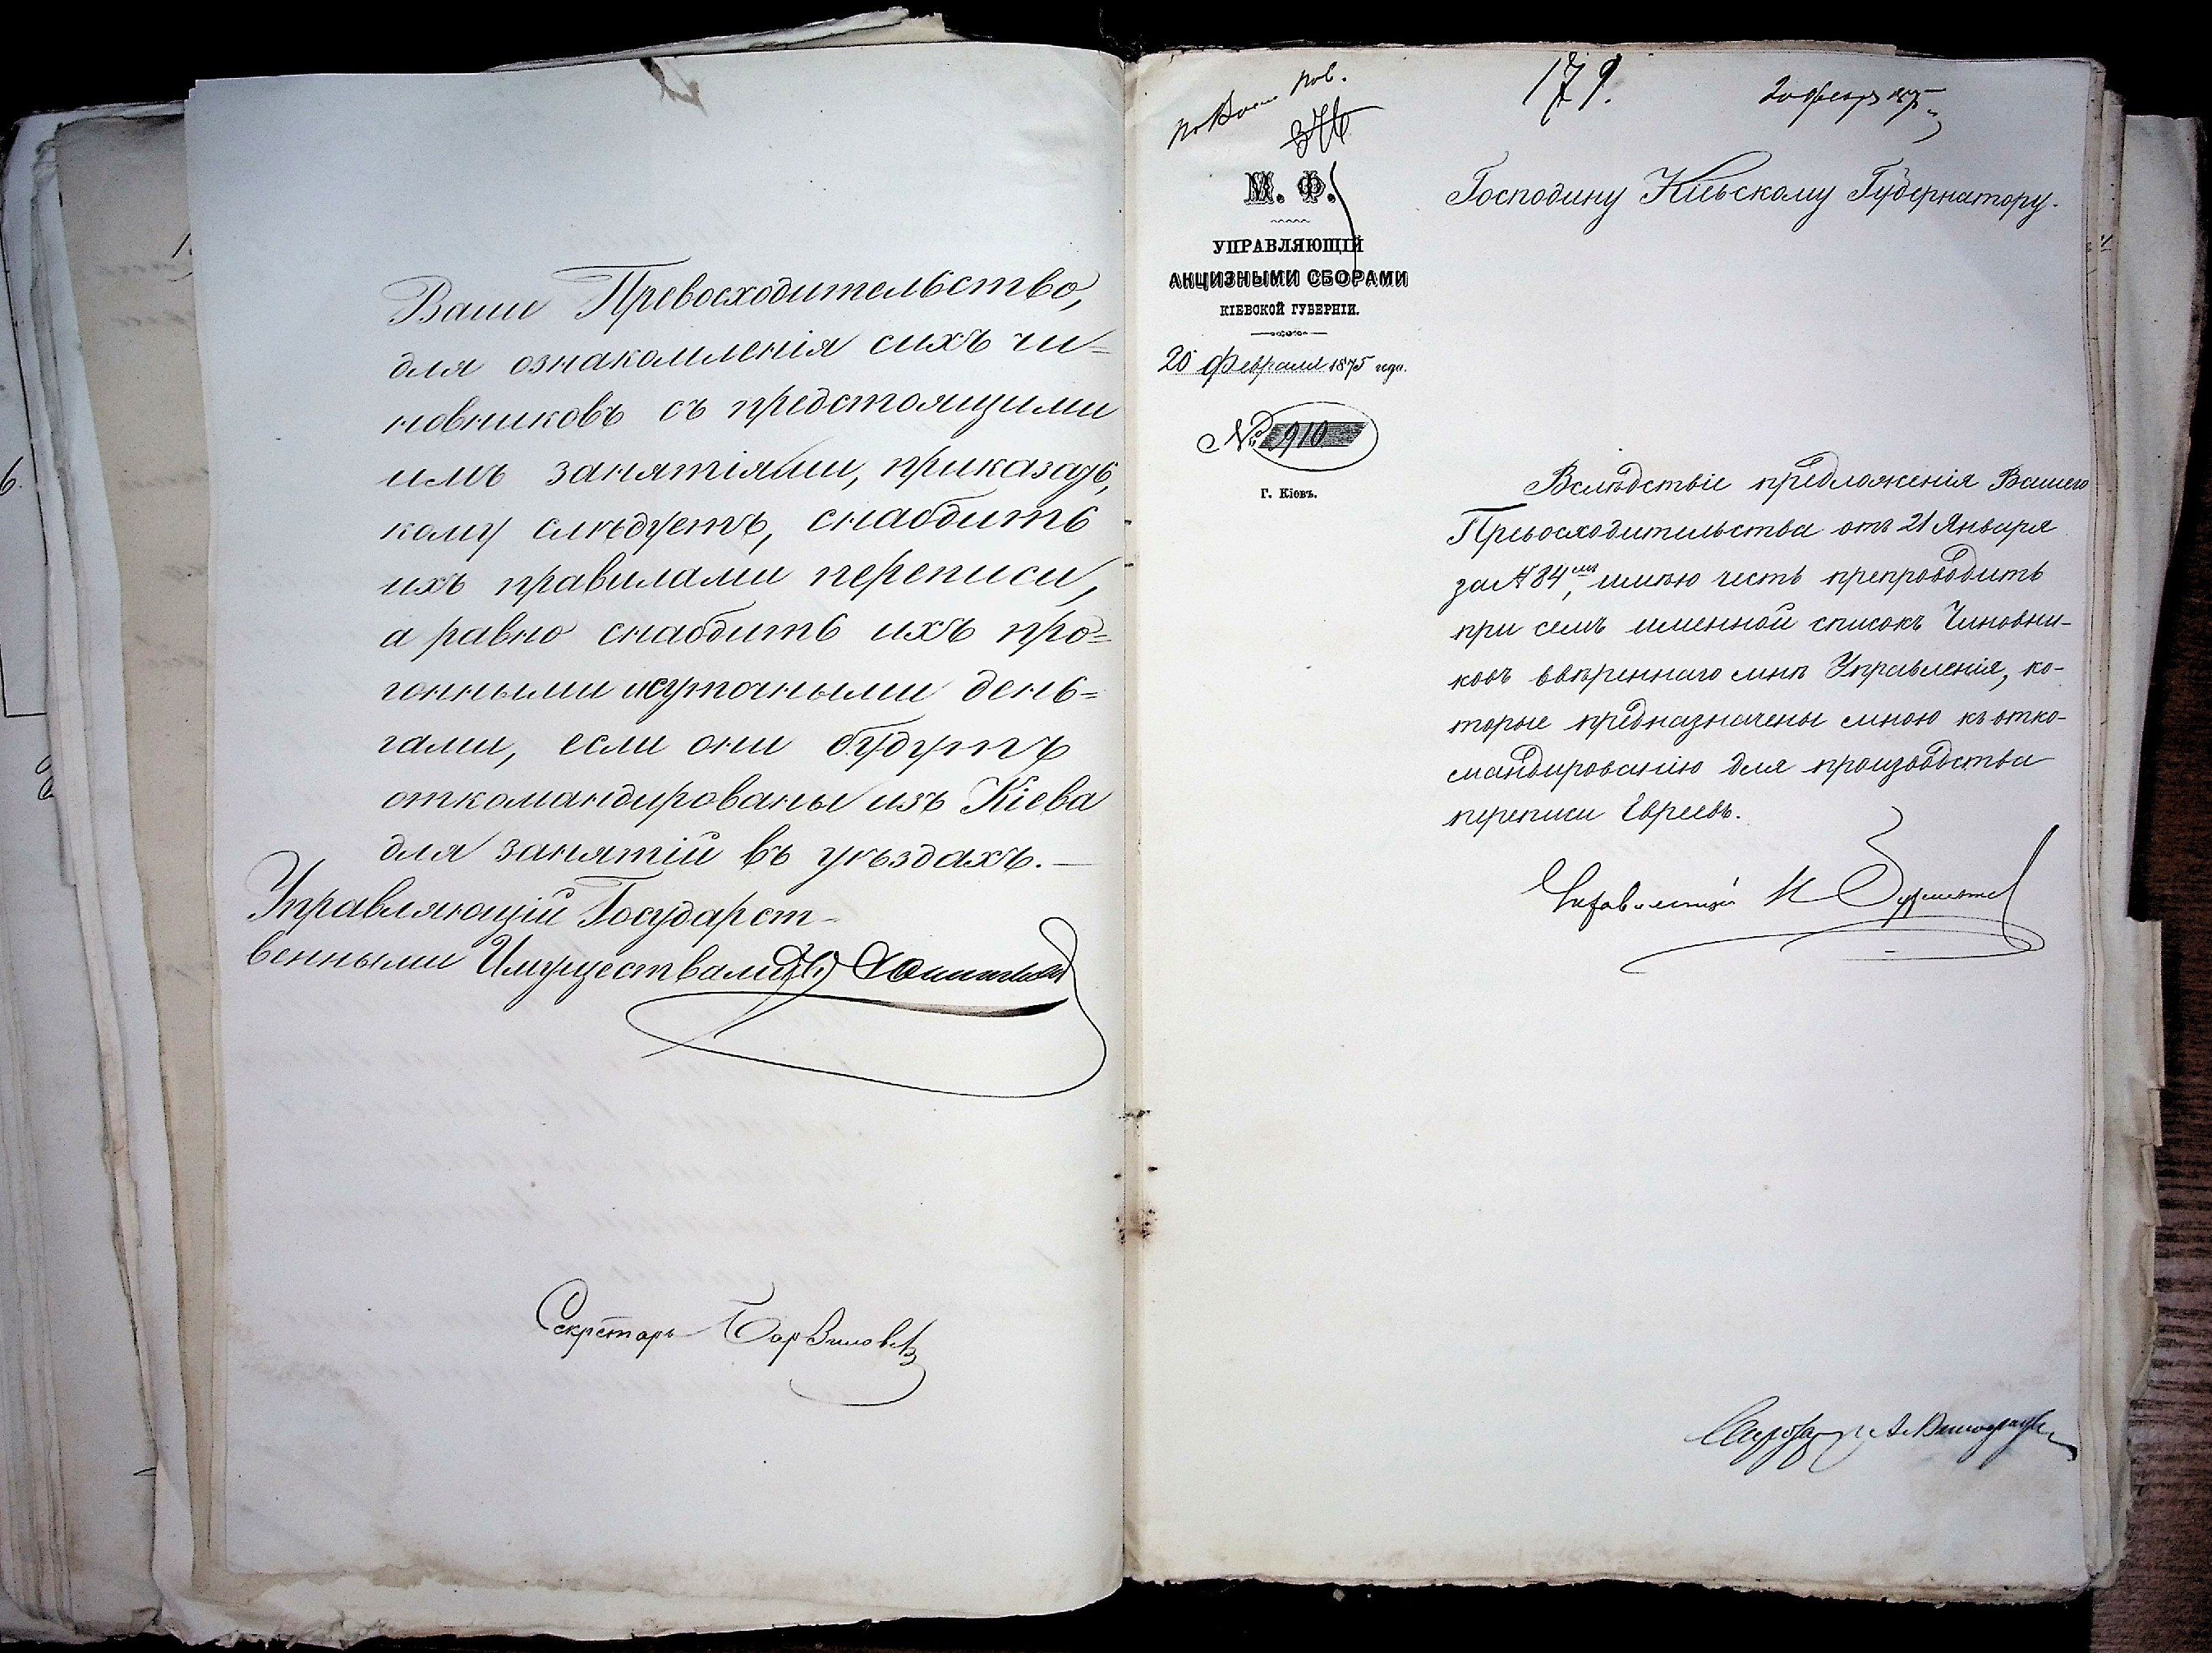 Ваше Превосходительство,
для ознакомленія сихъ чи=
новниковъ съ предстоящими
имъ занятіями, приказать,
кому слѣдуетъ, снабдить
ихъ правилами переписи,
а равно снабдить ихъ про=
гонными и суточными день=
гами, если они будутъ
откомандированы изъ Кіева
для занятій въ уѣздахъ.—
Управляющій Государст-
венными Имуществами
Секретарь
179.
М. Ф.
УПРАВЛЯЮЩІЙ
АКЦИЗНЫМИ СБОРАМИ
КІЕВСКОЙ ГУБЕРНІИ.
20 Февраля 1875 года.
№ 910
Г. Кіевъ.
Господину Кіевскому Губернатору.
Вслѣдствіе предложенія Вашего
Превосходительства отъ 21 Января
за № 84, имѣю честь препроводить
при семъ именной списокъ Чиновни-
ковъ ввѣреннаго мнѣ Управленія, ко-
торые предназначены мною къ отко-
мандированію для производства
переписи Евреевъ.
Управляющій
Секретарь А.